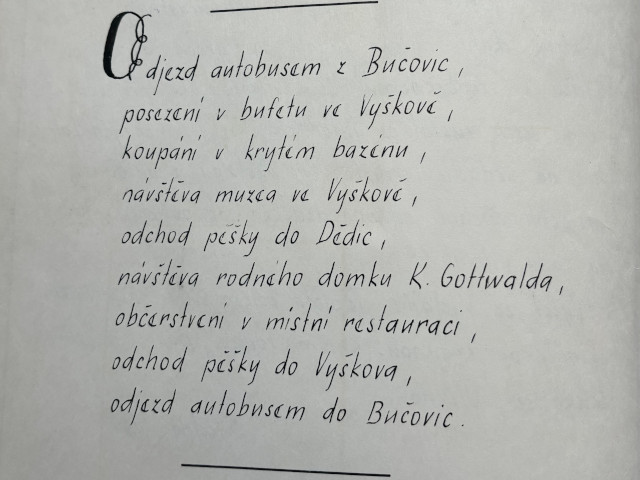 Odjezd autobusem z Bučovic,
posezení v bufetu ve Vyškově,
koupání v krytém bazénu,
návštěva muzea ve Vyškově,
odchod pěšky do Dědic,
návštěva rodného domku K. Gottwalda,
občerstvení v místní restauraci,
odchod pěšky do Vyškova,
odjezd autobusem do Bučovic.